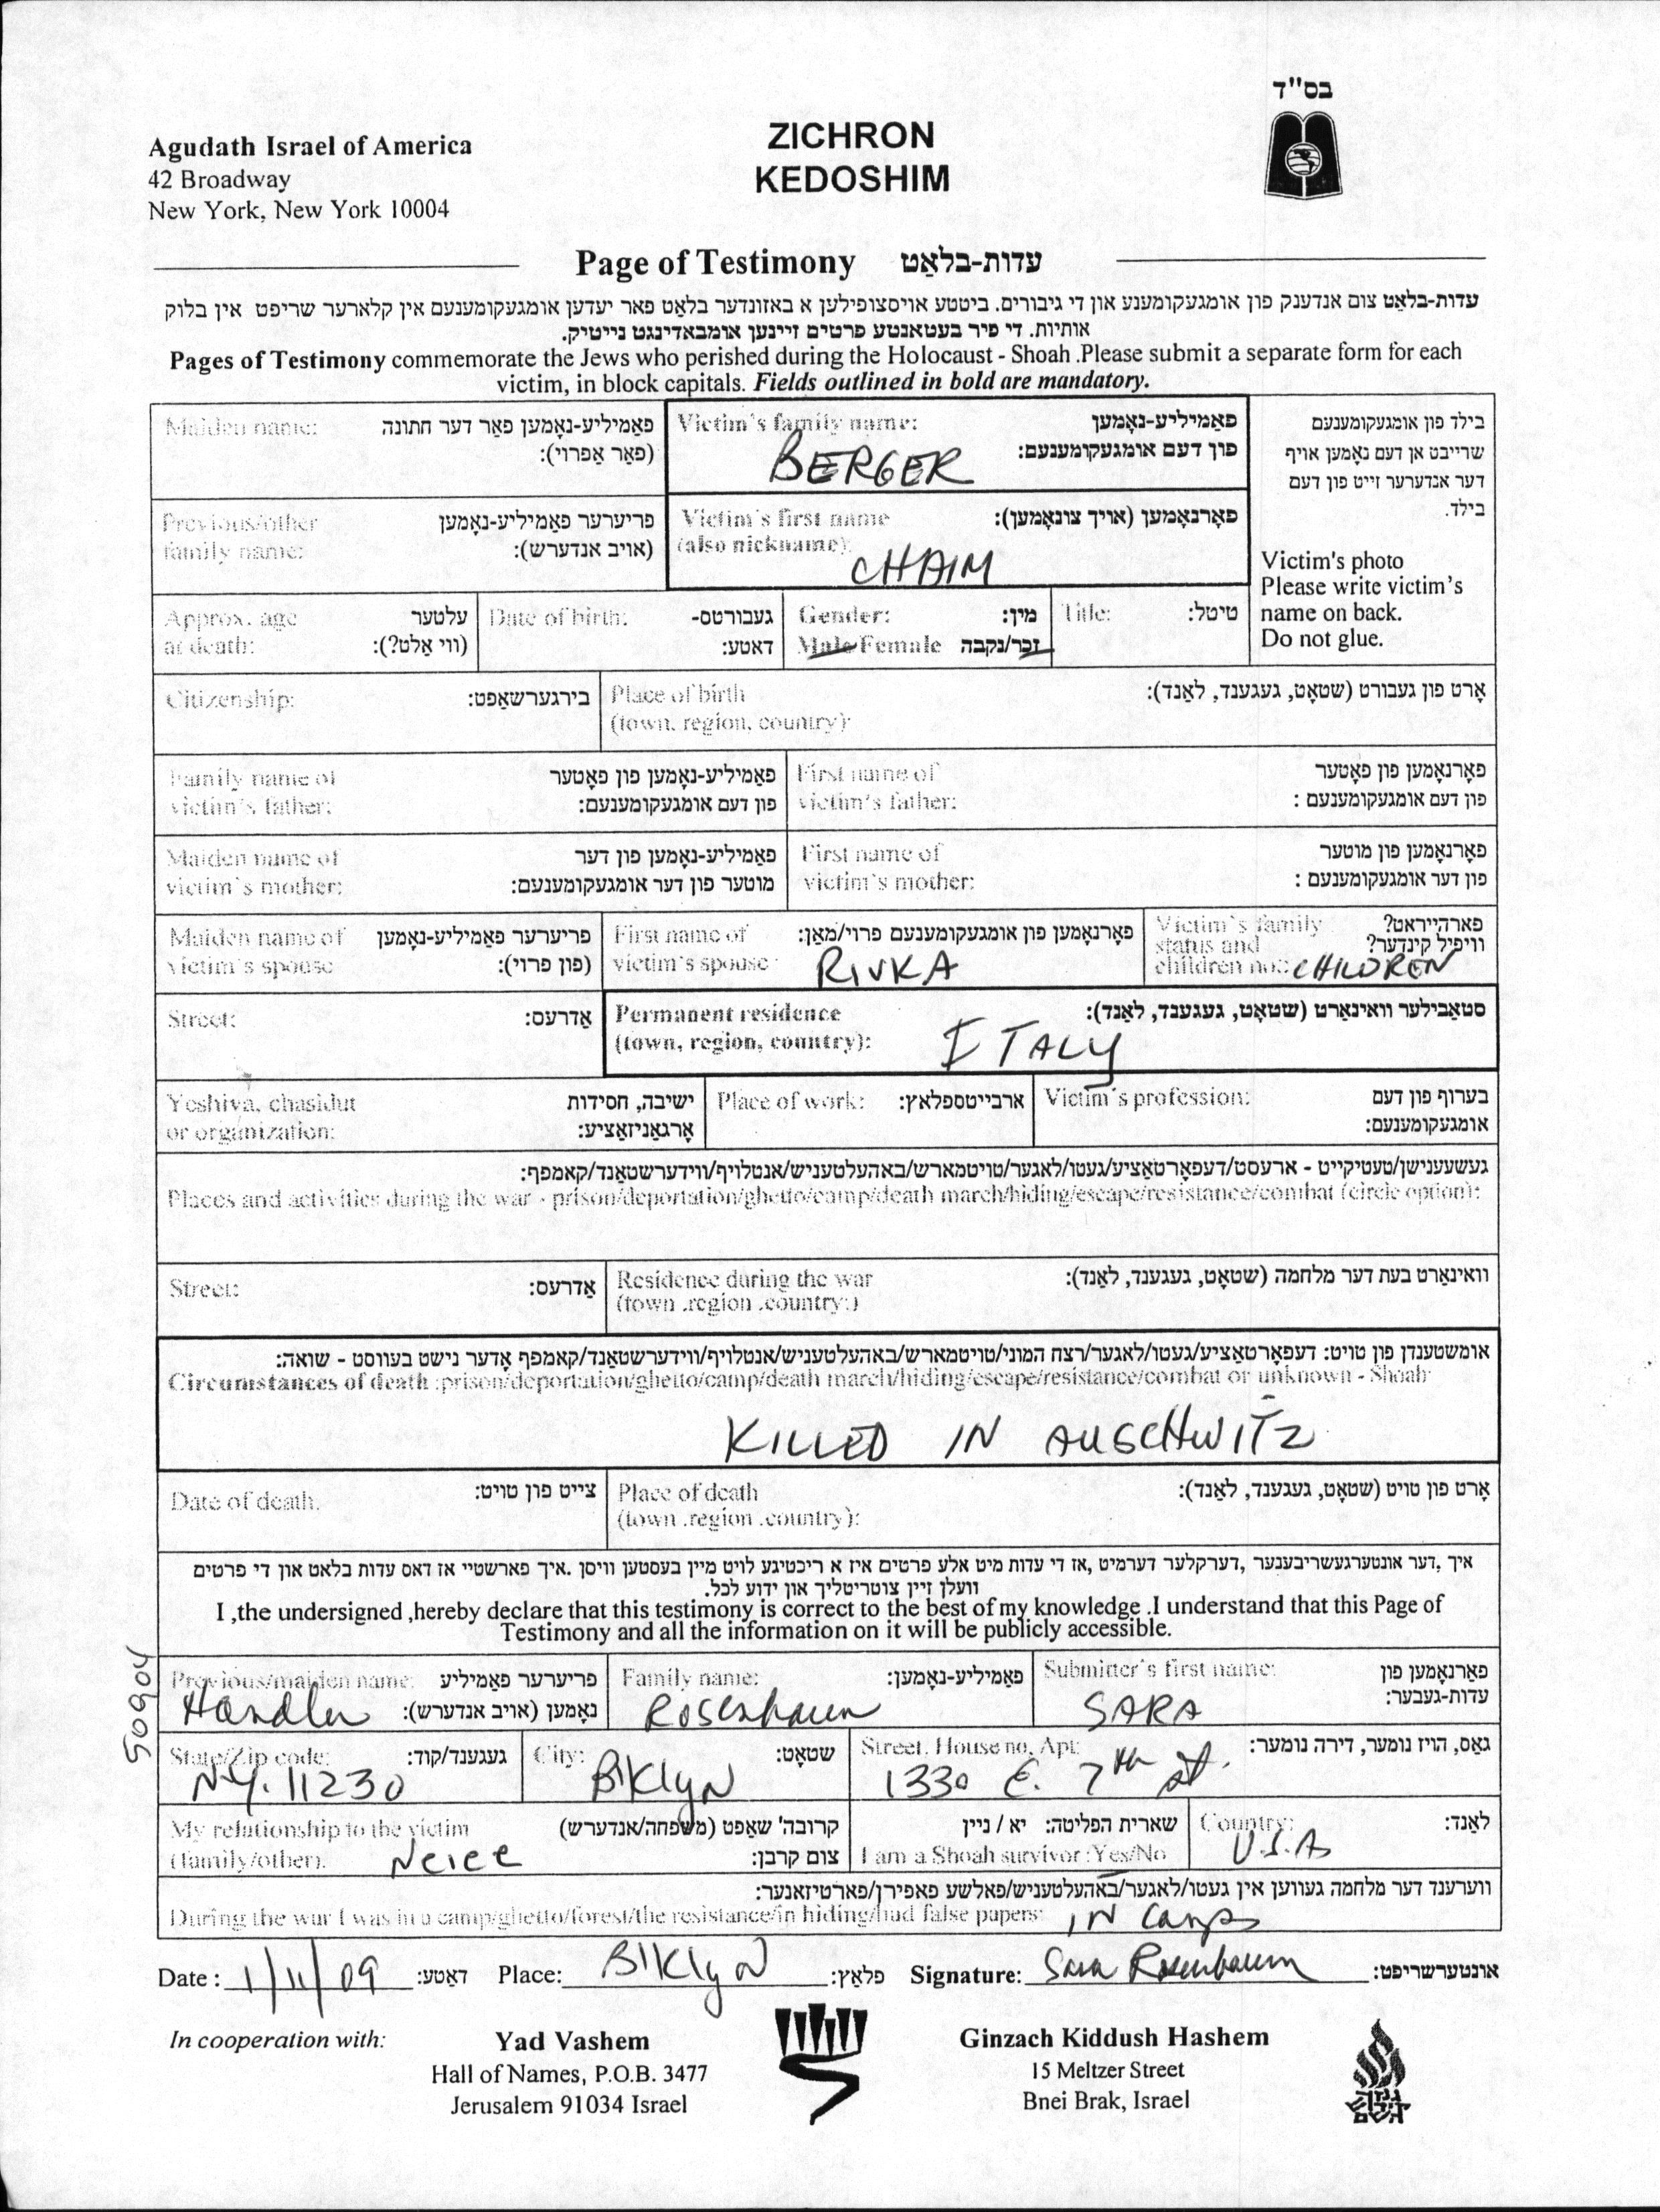 בס"ד
Agudath Israel of America
42 Broadway
New York, New York 10004
ZICHRON
KEDOSHIM
Page of Testimony עדות-בלאַט
עדות-בלאַט צום אנדענק פון אומגעקומענע און די גיבורים. ביטטע אויסצופילען א באזונדער בלאַט פאר יעדען אומגעקומענעם אין קלארער שריפט אין בלוק
אותיות. די פיר בעטאנטע פרטים זיינען אומבאדינגט נייטיק.
Pages of Testimony commemorate the Jews who perished during the Holocaust - Shoah .Please submit a separate form for each
victim, in block capitals. Fields outlined in bold are mandatory.
Maiden name: פאַמיליע-נאָמען פאַר דער חתונה
(פאַר אַפרוי):
Victim's family name: פאַמיליע-נאָמען
פון דעם אומגעקומענעם:
BERGER
Previous/other פריערער פאַמיליע-נאָמען
family name: (אויב אנדערש):
Victim's first name פאָרנאָמען (אויך צונאָמען):
(also nickname):
CHAIM
בילד פון אומגעקומענעם
שרייבט אן דעם נאָמען אויף
דער אנדערער זייט פון דעם
בילד.
Victim's photo
Please write victim's
name on back.
Do not glue.
Approx. age עלטער
at death: (ווי אַלט?):
Date of birth: געבורטס-
דאטע:
Gender: מין:
Male/Female זכר/נקבה
Title: טיטל:
Citizenship: בירגערשאַפט:
Place of birth אָרט פון געבורט (שטאָט, געגענד, לאַנד):
(town, region, country):
Family name of פאַמיליע-נאָמען פון פאָטער
victim's father: פון דעם אומגעקומענעם:
First name of פאָרנאָמען פון פאָטער
victim's father: פון דעם אומגעקומענעם :
Maiden name of פאַמיליע-נאָמען פון דער
victim's mother: מוטער פון דער אומגעקומענעם:
First name of פאָרנאָמען פון מוטער
victim's mother: פון דער אומגעקומענעם :
Maiden name of פריערער פאַמיליע-נאָמען
victim's spouse (פון פרוי):
First name of פאָרנאָמען פון אומגעקומענעם פרוי/מאַן:
victim's spouse: RIVKA
Victim's family פארהייראט?
status and וויפיל קינדער?
children no.: CHILDREN
Street: אַדרעס:
Permanent residence סטאַבילער וואינארט (שטאָט, געגענד, לאַנד):
(town, region, country): ITALY
Yeshiva, chasidut ישיבה, חסידות
or organization: אָרגאַניזאַציע:
Place of work: ארבייטספלאץ:
Victim's profession: בערוף פון דעם
אומגעקומענעם:
געשעענישן/טעטיקייט - ארעסט/דעפאָרטאַציע/געטו/לאגער/טויטמארש/באהעלטעניש/אנטלויף/ווידערשטאַנד/קאמפף:
Places and activities during the war - prison/deportation/ghetto/camp/death march/hiding/escape/resistance/combat (circle option):
Street: אַדרעס:
Residence during the war וואינאַרט בעת דער מלחמה (שטאָט, געגענד, לאַנד):
(town .region .country:)
אומשטענדן פון טויט: דעפאָרטאַציע/געטו/לאגער/רצח המוני/טויטמארש/באהעלטעניש/אנטלויף/ווידערשטאַנד/קאמפף אָדער נישט בעוווסט - שואה:
Circumstances of death :prison/deportation/ghetto/camp/death march/hiding/escape/resistance/combat or unknown - Shoah
KILLED IN AUSCHWITZ
Date of death. צייט פון טויט:
Place of death אָרט פון טויט (שטאָט, געגענד, לאַנד):
(town .region .country):
איך ,דער אונטערגעשריבענער ,דערקלער דערמיט ,אז די עדות מיט אלע פרטים איז א ריכטיגע לויט מיין בעסטען וויסן .איך פארשטיי אז דאס עדות בלאט און די פרטים
וועלן זיין צוטריטליך און ידוע לכל.
I ,the undersigned ,hereby declare that this testimony is correct to the best of my knowledge .I understand that this Page of
Testimony and all the information on it will be publicly accessible.
50904
Previous/maiden name: פריערער פאַמיליע
Handler נאָמען (אויב אנדערש):
Family name: פאַמיליע-נאָמען:
Rosenbaum
Submitter's first name: פאָרנאָמען פון
עדות-געבער:
SARA
State/Zip code: געגענד/קוד:
N.Y. 11230
City: שטאָט:
BKlyN
Street, House no, Apt: גאַס, הויז נומער, דירה נומער:
1330 E. 7th st.
My relationship to the victim קרובה' שאַפט (משפחה/אנדערש)
(family/other). Neice צום קרבן:
שארית הפליטה: יא / ניין
I am a Shoah survivor :Yes/No
Country: לאַנד:
U.S.A
ווערענד דער מלחמה געווען אין געטו/לאגער/באהעלטעניש/פאלשע פאפירן/פארטיזאנער:
During the war I was in a camp/ghetto/forest/the resistance/in hiding/had false papers: IN Camps
Date : 1/11/09 דאַטע: Place: BKlyN פלאַץ: Signature: Sara Rosenbaum אונטערשריפט:
In cooperation with:
Yad Vashem
Hall of Names, P.O.B. 3477
Jerusalem 91034 Israel
Ginzach Kiddush Hashem
15 Meltzer Street
Bnei Brak, Israel
גנזך
קידוש
השם